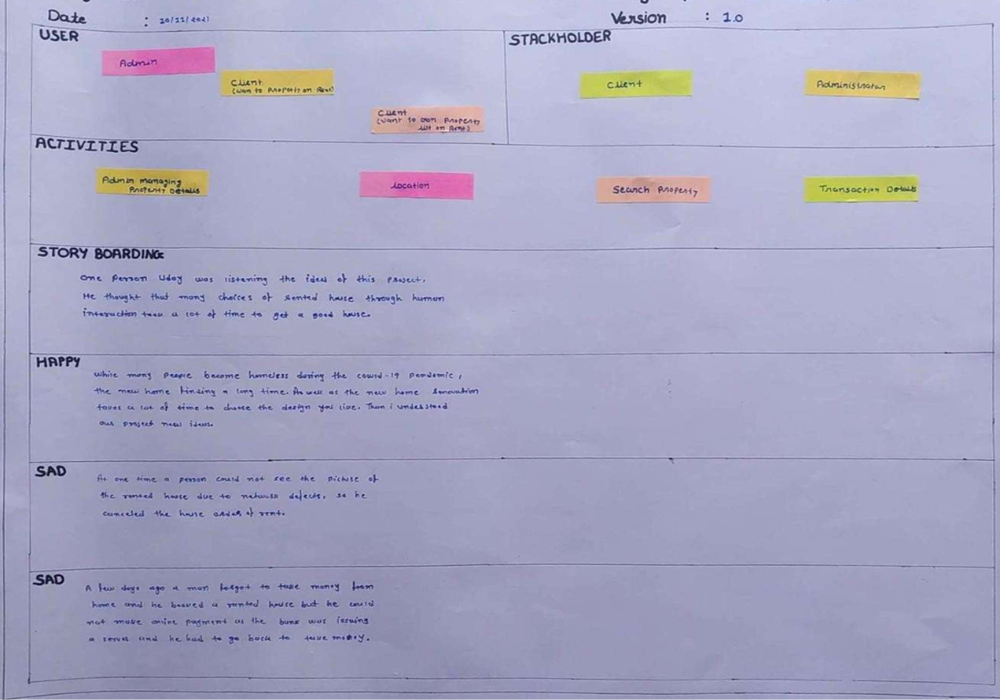 Date : 20/11/2021
Version : 1.0
USER
Admin
Client
(want to Property on Rent)
Client
(want to own Property
let on Rent)
STACKHOLDER
Client
Administrator
ACTIVITIES
Admin managing
Property Details
Location
Search Property
Transaction Details
STORY BOARDING
One Person Uday was listening the idea of this Project.
He thought that many choices of rented house through human
interaction took a lot of time to get a good house.
HAPPY
While many people become homeless during the covid-19 pandemic,
the new home finding a long time. As well as the new home renovation
takes a lot of time to choose the design you like. Then i understood
our project new ideas.
SAD
At one time a person could not see the picture of
the rented house due to network defects, so he
canceled the house order of rent.
SAD
A few days ago a man forgot to take money from
home and he booked a rented house but he could
not make online payment as the bank was issuing
a server and he had to go back to take money.